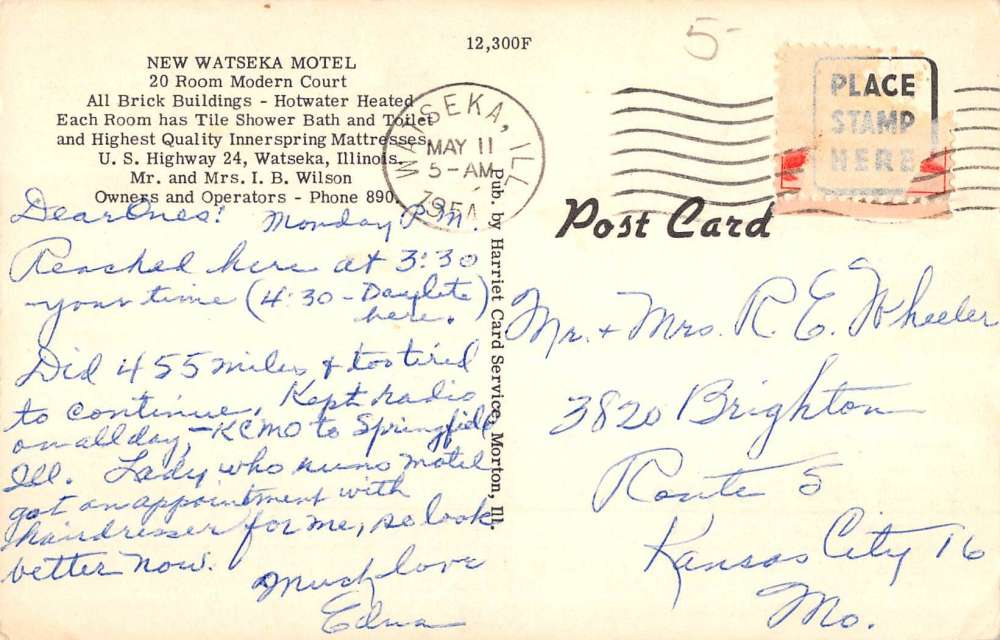 12,300F
5-
NEW WATSEKA MOTEL
20 Room Modern Court
All Brick Buildings - Hotwater Heated
Each Room has Tile Shower Bath and Toilet
and Highest Quality Innerspring Mattresses
U. S. Highway 24, Watseka, Illinois.
Mr. and Mrs. I. B. Wilson
Owners and Operators - Phone 890.
WATSEKA, ILL.
MAY 11
5 - AM
1954
PLACE
STAMP
HERE
Post Card
Pub. by Harriet Card Service, Morton, Ill.
Dear Ones: Monday P.M.
Reached here at 3:30
your time (4:30 - Daylite
here.)
Did 455 miles & too tired
to continue. Kept radio
on all day, - KCMO to Springfield
Ill. Lady who runs motel
got an appointment with
hairdresser for me, so look
better now.
Much love
Edna
Mr. + Mrs. R. E. Wheeler
3820 Brighton
Route 5
Kansas City 16
Mo.